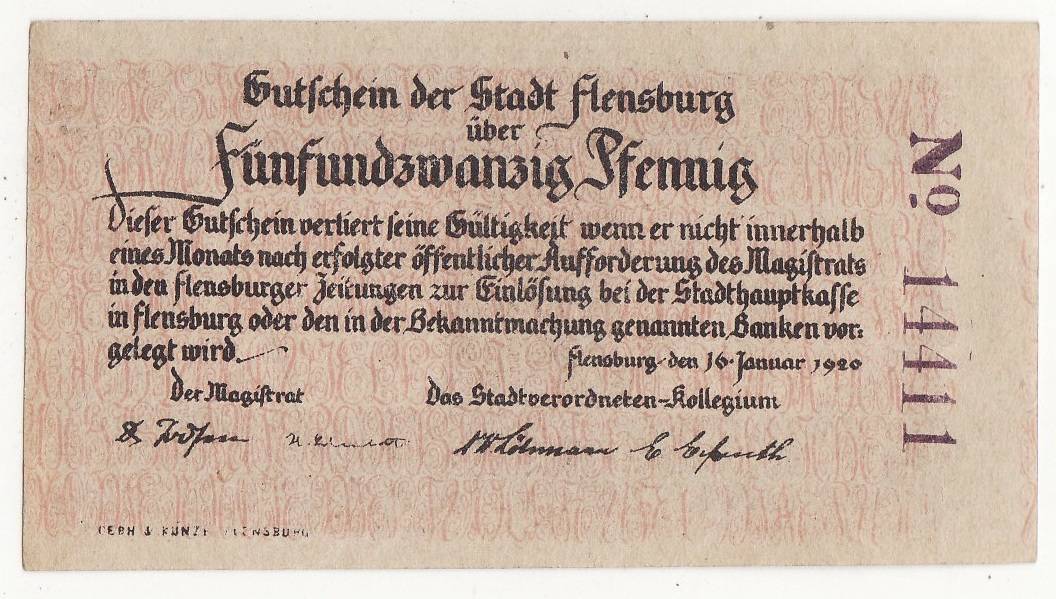 Gutschein der Stadt Flensburg
über
Fünfundzwanzig Pfennig
Dieser Gutschein verliert seine Gültigkeit wenn er nicht innerhalb
eines Monats nach erfolgter öffentlicher Aufforderung des Magistrats
in den Flensburger Zeitungen zur Einlösung bei der Stadthauptkasse
in Flensburg oder den in der Bekanntmachung genannten Banken vor:
gelegt wird.
Flensburg den 16. Januar 1920
Der Magistrat
Das Stadtverordneten-Kollegium
& KUNZE FLENSBURG
No 14411